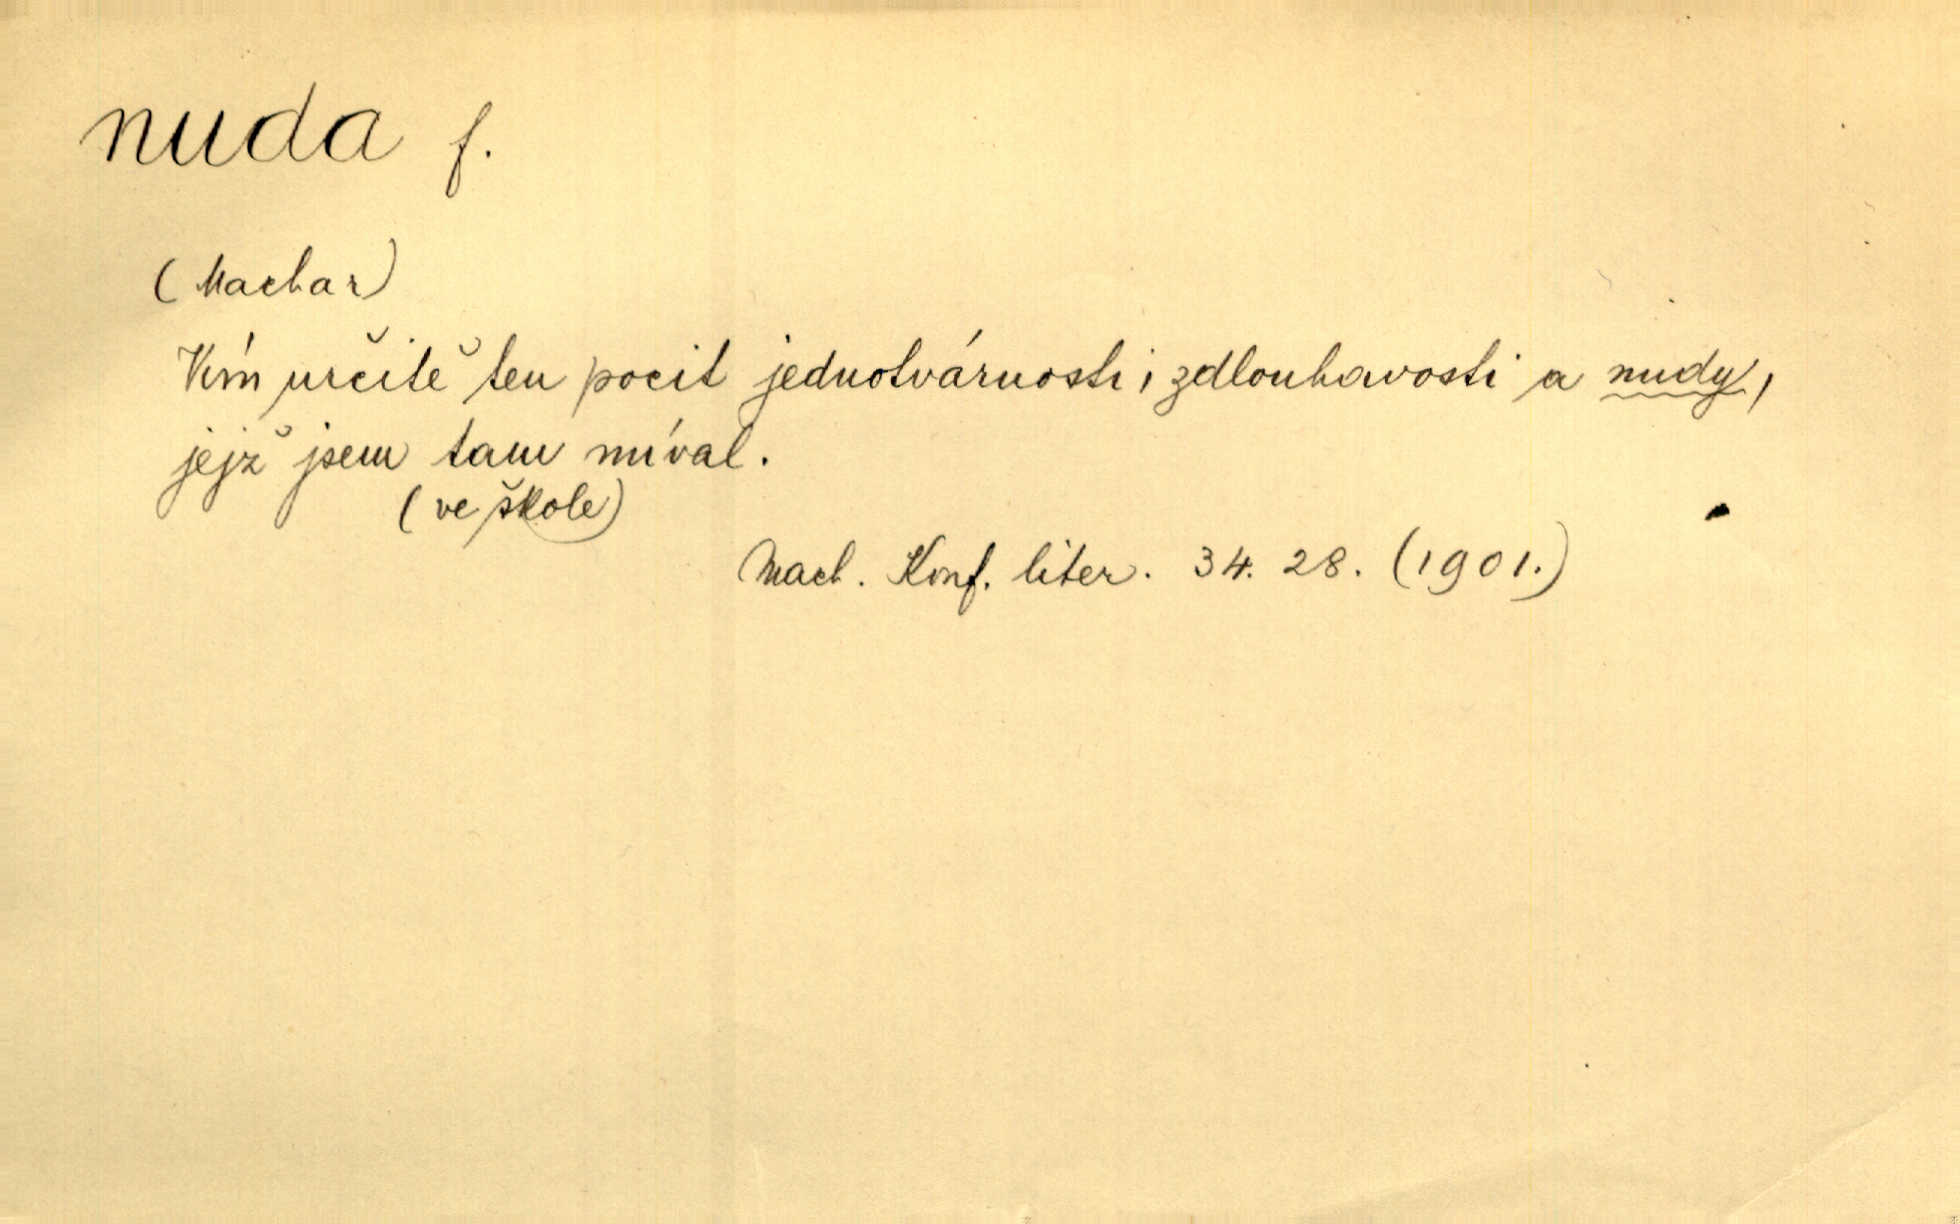 nuda f.
(Machar)
Vím určitě ten pocit jednotvárnosti, zdlouhavosti a nudy,
jejž jsem tam míval.
(ve škole)
Mach. Konf. liter. 34. 28. (1901.)